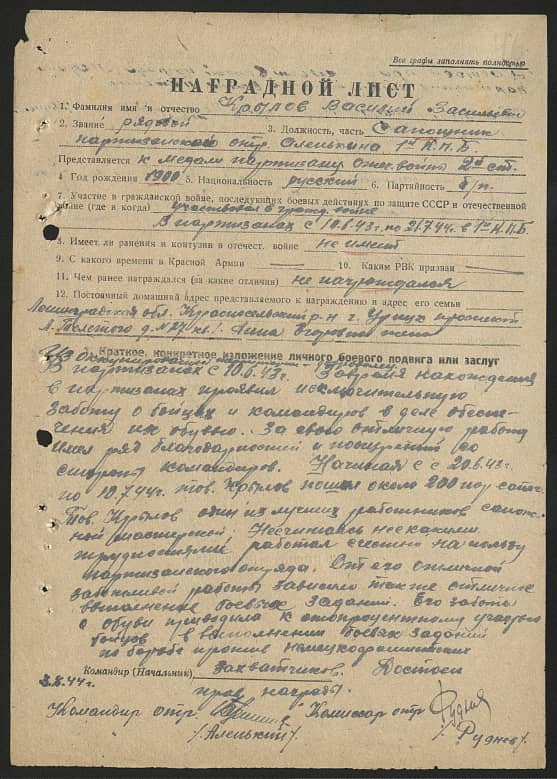 Все графы заполнять полностью
НАГРАДНОЙ ЛИСТ
1. Фамилия имя и отчество Крылов Василий Васильевич
2. Звание рядовой 3. Должность, часть Сапожник
партизанского отр. Оленькина 1ой К.П.Б.
Представляется к медали партизану отеч. войны 2й ст.
4 Год рождения 1900 5. Национальность русский 6. Партийность б/п.
7. Участие в гражданской войне, последующих боевых действиях по защите СССР и отечественной
войне (где и когда) участвовал в гражд. войне
В партизанах с 10.6.43 г. по 21.7.44 г. в 1ой К.П.Б.
8. Имеет ли ранения и контузии в отечест. войне не имеет
9. С какого времени в Красной Армии 10. Каким РВК призван
11. Чем ранее награждался (за какие отличия) не награждался
12. Постоянный домашний адрес представляемого к награждению и адрес его семьи
Ленинградская обл. Красносельский р-н г. Урицк проспект
Л. Толстого д. № 27 кв. 1. Анна Егоровна жена
Краткое, конкретное изложение личного боевого подвига или заслуг
В партизанах с 10.6.43 г. За время нахождения
в партизанах проявил исключительную
заботу о бойцах и командиров в деле обеспе-
чения их обувью. За свою отличную работу
имел ряд благодарностей и поощрений со
стороны командиров. Начиная с с 20.6.43 г.
по 10.7.44 г. тов. Крылов пошил около 200 пар сапог.
Тов. Крылов один из лучших работников сапож-
ной мастерской. Несчитаясь нескакими
трудностями работал честно на пользу
партизанского отряда. От его отличной
заботливой работы зависело так же отличное
выполнение боевых заданий. Его забота
о обуви приводила к стопроцентному участию
бойцов в выполнении боевых заданий
по борьбе против немецкофашистских
Командир (Начальник) захватчиков. Достоен
3.8.44 г. прав. награды.
Командир отр. Комиссар отр
/Аленький/ /Руднев/.